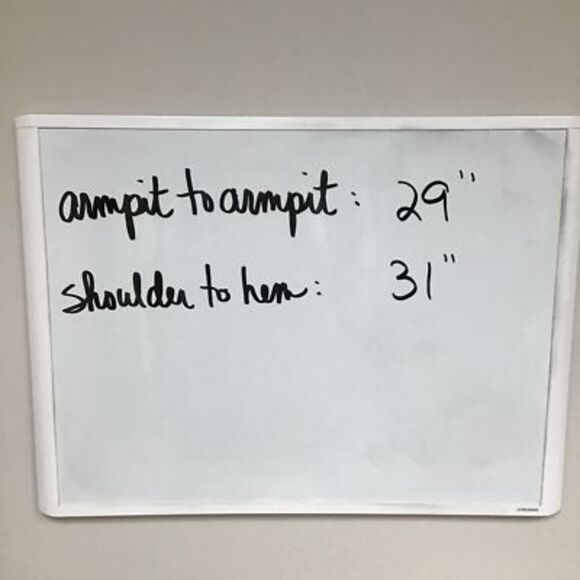 armpit to armpit: 29"
shoulder to hem: 31"